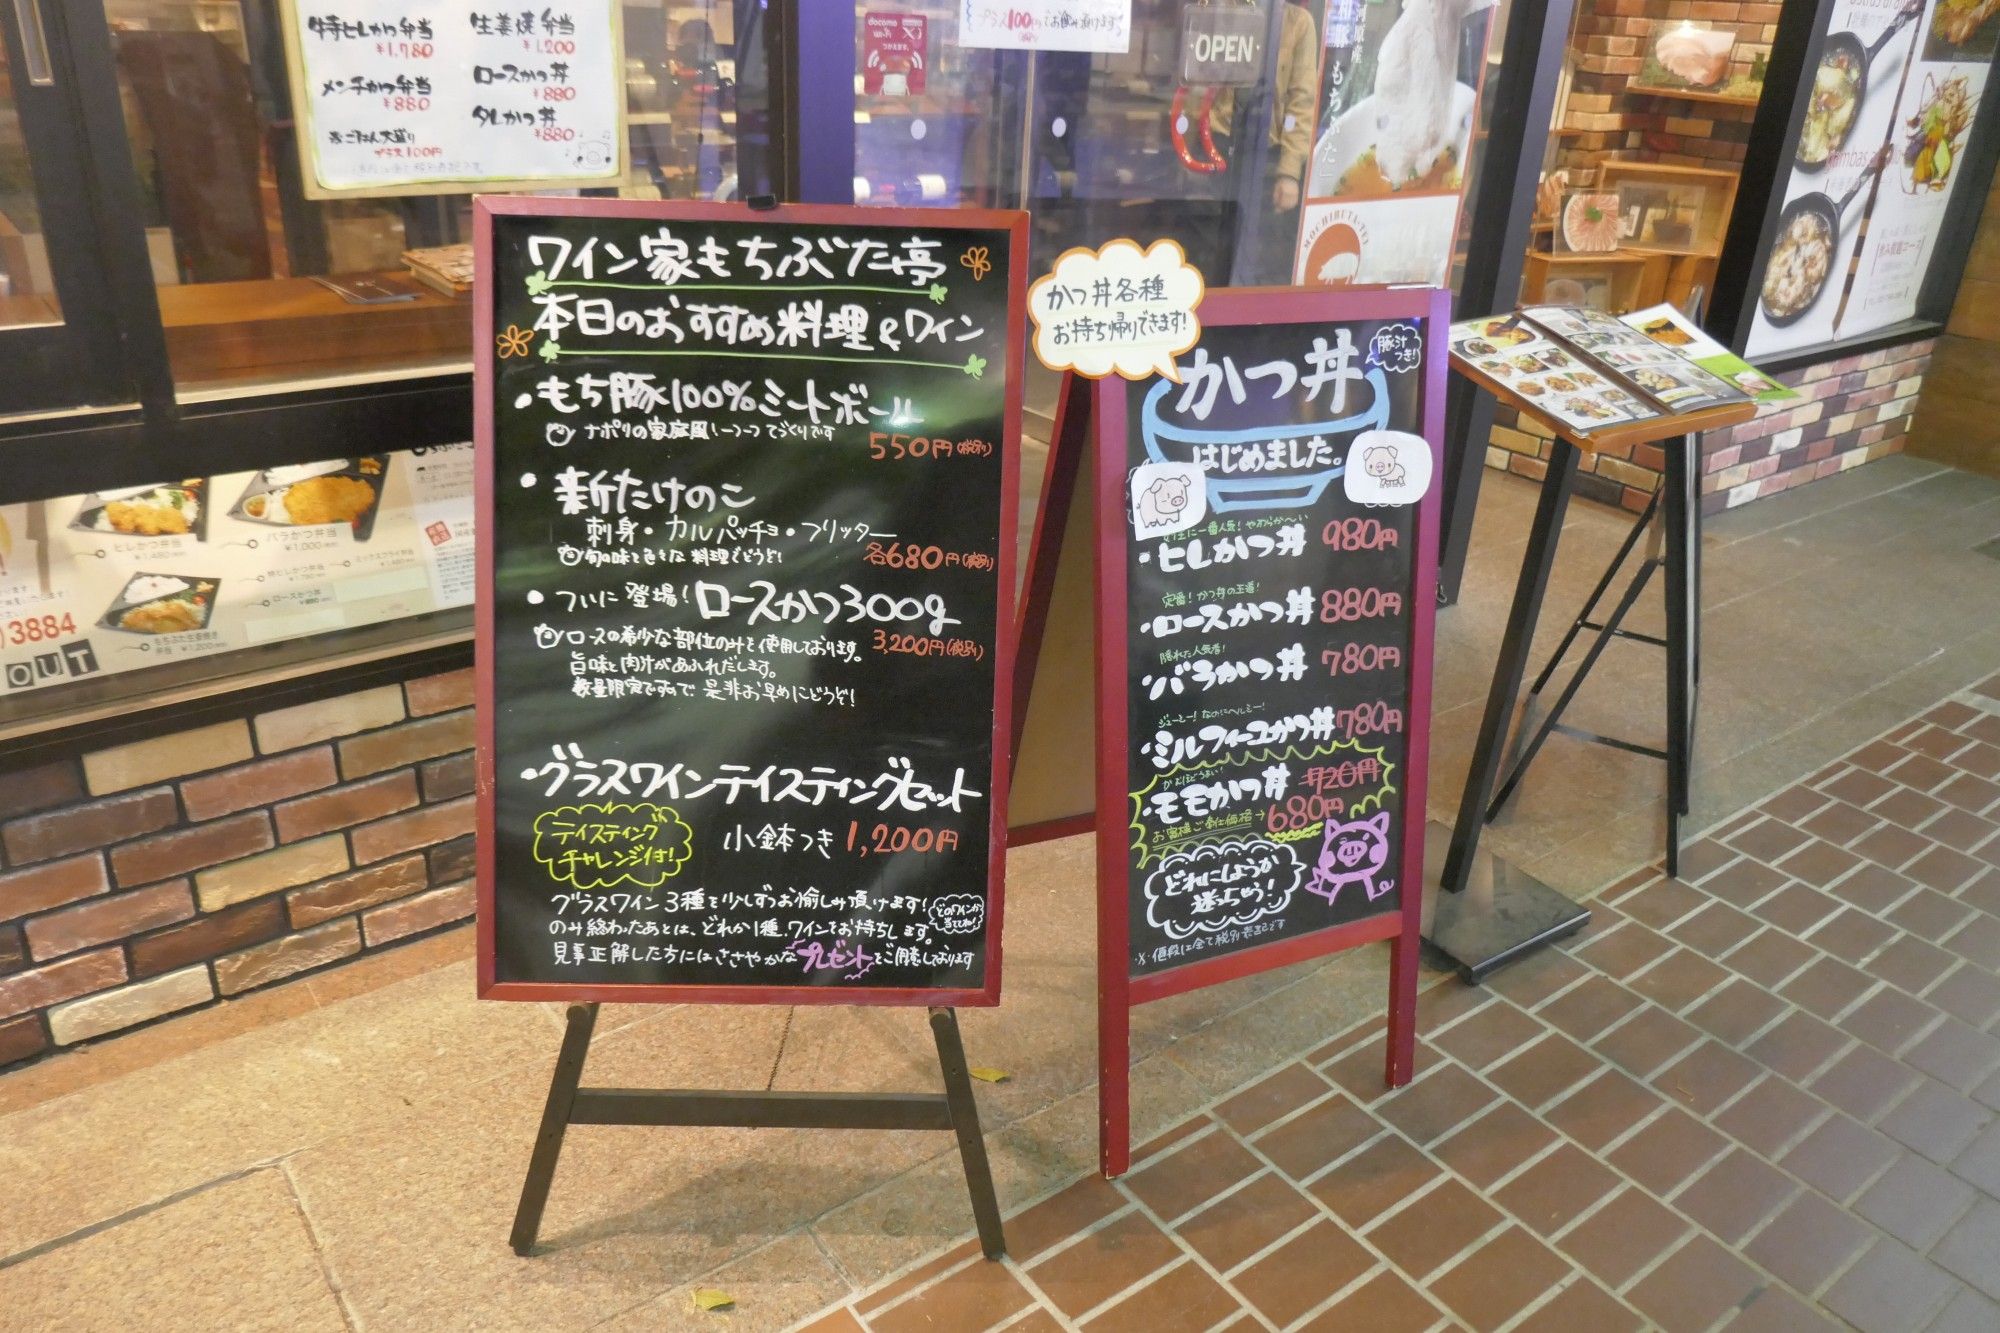 特ヒレかつ弁当
¥1,780
メンチかつ弁当
¥880
※ごはん大盛り
プラス100円
生姜焼弁当
¥1,200
ロースかつ丼
¥880
タレかつ丼
¥880
docomo
Wi-Fi
つかえます。
プラス100円でお飲み頂けます!
OPEN
もちぶた」
ワイン家もちぶた亭
本日のおすすめ料理&ワイン
・もち豚100%ミートボール
ナポリの家庭風 一つ一つてづくりです
550円(税別)
・新たけのこ
刺身・カルパッチョ・フリッター
旬の味を色々な料理でどうぞ!
各680円(税別)
・ついに登場!ロースかつ300g
ロースの希少な部位のみを使用しております。
3,200円(税別)
旨味と肉汁があふれだします。
数量限定ですので是非お早めにどうぞ!
・グラスワインテイスティングセット
テイスティング
チャレンジ付!
小鉢つき 1,200円
グラスワイン3種を少しずつお愉しみ頂けます!
のみ終わったあとは、どれか1種、ワインをお持ちします。
どのワインか
当ててね!
見事正解した方にはささやかなプレゼントをご用意しております
かつ丼各種
お持ち帰りできます!
かつ丼
豚汁
つき!
はじめました。
女性に一番人気!やわらか〜い
・ヒレかつ丼 980円
定番!かつ丼の王道!
・ロースかつ丼 880円
隠れた人気者!
・バラかつ丼 780円
ジューシー!なのにヘルシー!
・ミルフィーユかつ丼 780円
かむほどうまい!
・モモかつ丼 720円
お客様ご奉仕価格→680円
どれにしようか
迷っちゃう!
※価段は全て税別表記です
ヒレかつ弁当
¥1,480
バラかつ弁当
¥1,000
特ヒレかつ弁当
¥1,780
ミックスフライ弁当
¥1,480
ロースかつ弁当
¥880
もちぶた生姜焼き
弁当 ¥1,200
3884
OUT